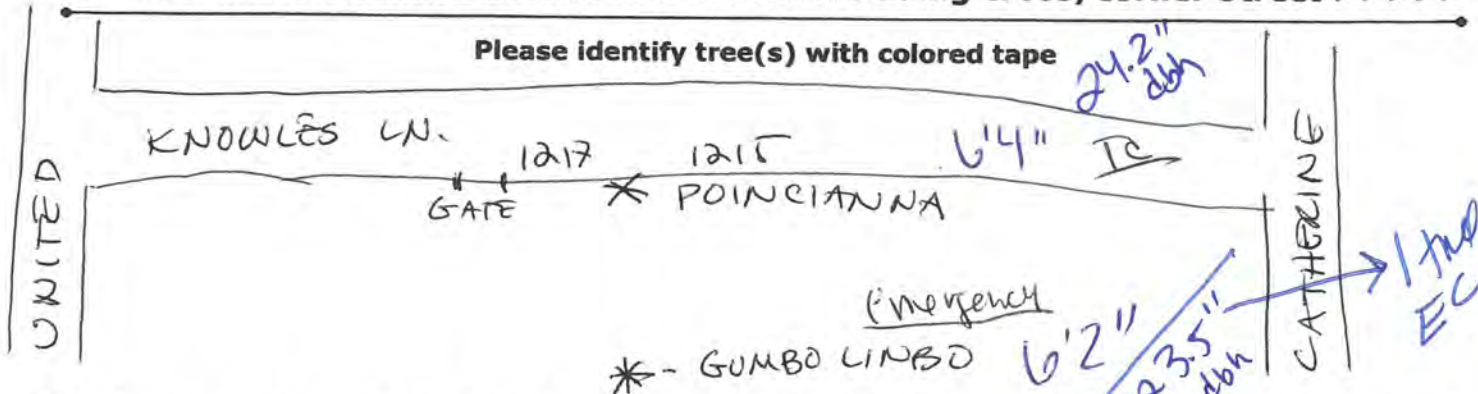 Please identify tree(s) with colored tape
24.2"
dbh
KNOWLES LN.
1217
1215
6'4"
IC
GATE
POINCIANNA
UNITED
CATHERINE
Emergency
* - GUMBO LINBO
6'2"
23.5"
dbh
1 tree
EC